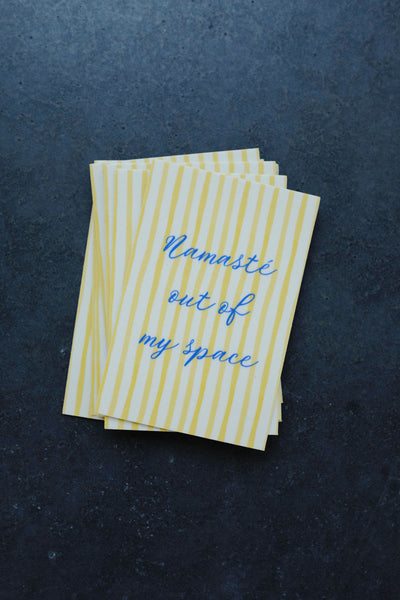 Namasté
out of
my space